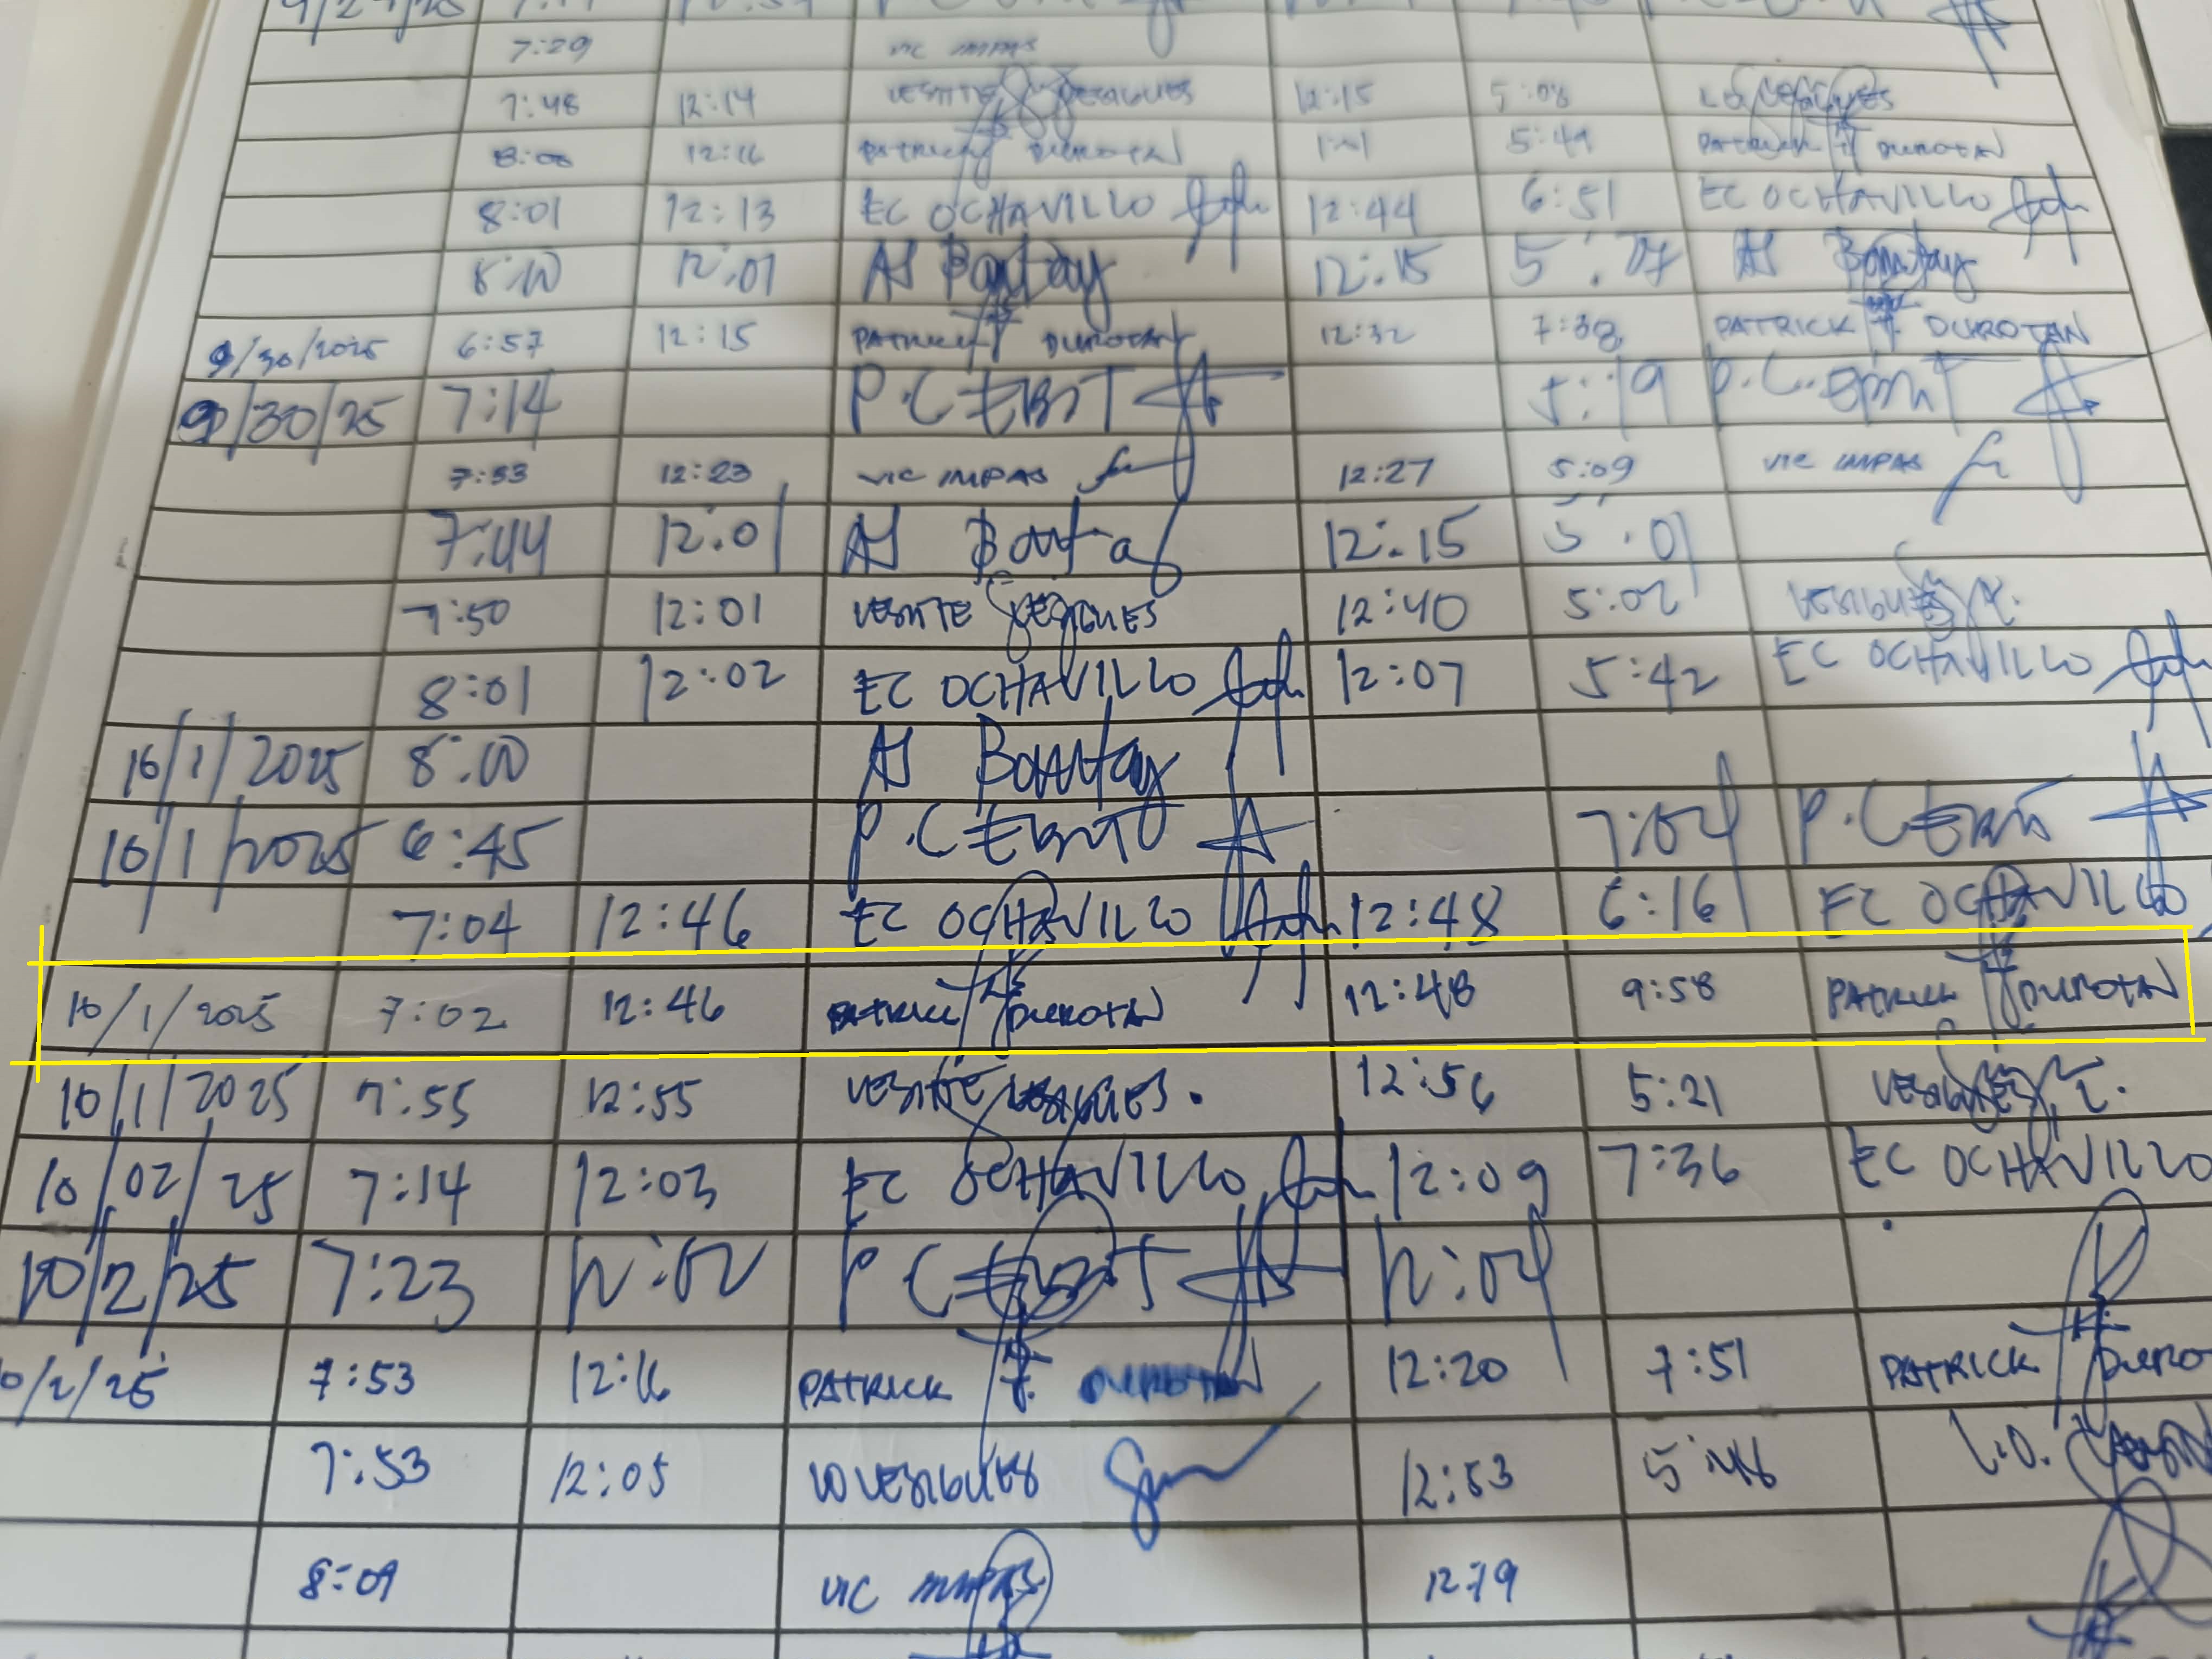 7:29 VIC IMPAS
7:48 12:14 VESIGUES 12:15 5:08 VESIGUES
8:00 12:16 PATRICK DUROTAN 5:49 PATRICK F. DUROTAN
8:01 12:13 EC OCHAVILLO 12:44 6:51 EC OCHAVILLO
8:00 12:01 AJ Bantay 12:15 5:07 AJ Bantay
9/30/2025 6:57 12:15 PATRICK F. DUROTAN 12:32 7:38 PATRICK F. DUROTAN
9/30/25 7:14 P.C 5:19 P.C.
7:53 12:23 VIC IMPAS 12:27 5:09 VIC IMPAS
7:44 12:01 AJ Bantay 12:15 5:01
7:50 12:01 VESIGUES 12:40 5:02 VESIGUES
8:01 12:02 EC OCHAVILLO 12:07 5:42 EC OCHAVILLO
10/1/2025 8:00 AJ Bantay
10/1/2025 6:45 P.C 7:04 P.C
7:04 12:46 EC OCHAVILLO 12:48 6:16 EC OCHAVILLO
10/1/2025 7:02 12:46 PATRICK F. DUROTAN 12:48 9:58 PATRICK F. DUROTAN
10/1/2025 7:55 12:55 VESIGUES. 12:56 5:21 VESIGUES
10/02/25 7:14 12:03 EC OCHAVILLO 12:09 7:36 EC OCHAVILLO
10/2/25 7:23 12:02 P C 12:04
0/2/25 7:53 12:16 PATRICK F. DUROTAN 12:20 7:51 PATRICK F. DURO
7:53 12:05 LO VESIGUES 12:53 5:48 L.O.
8:09 VIC IMPAS 12:79